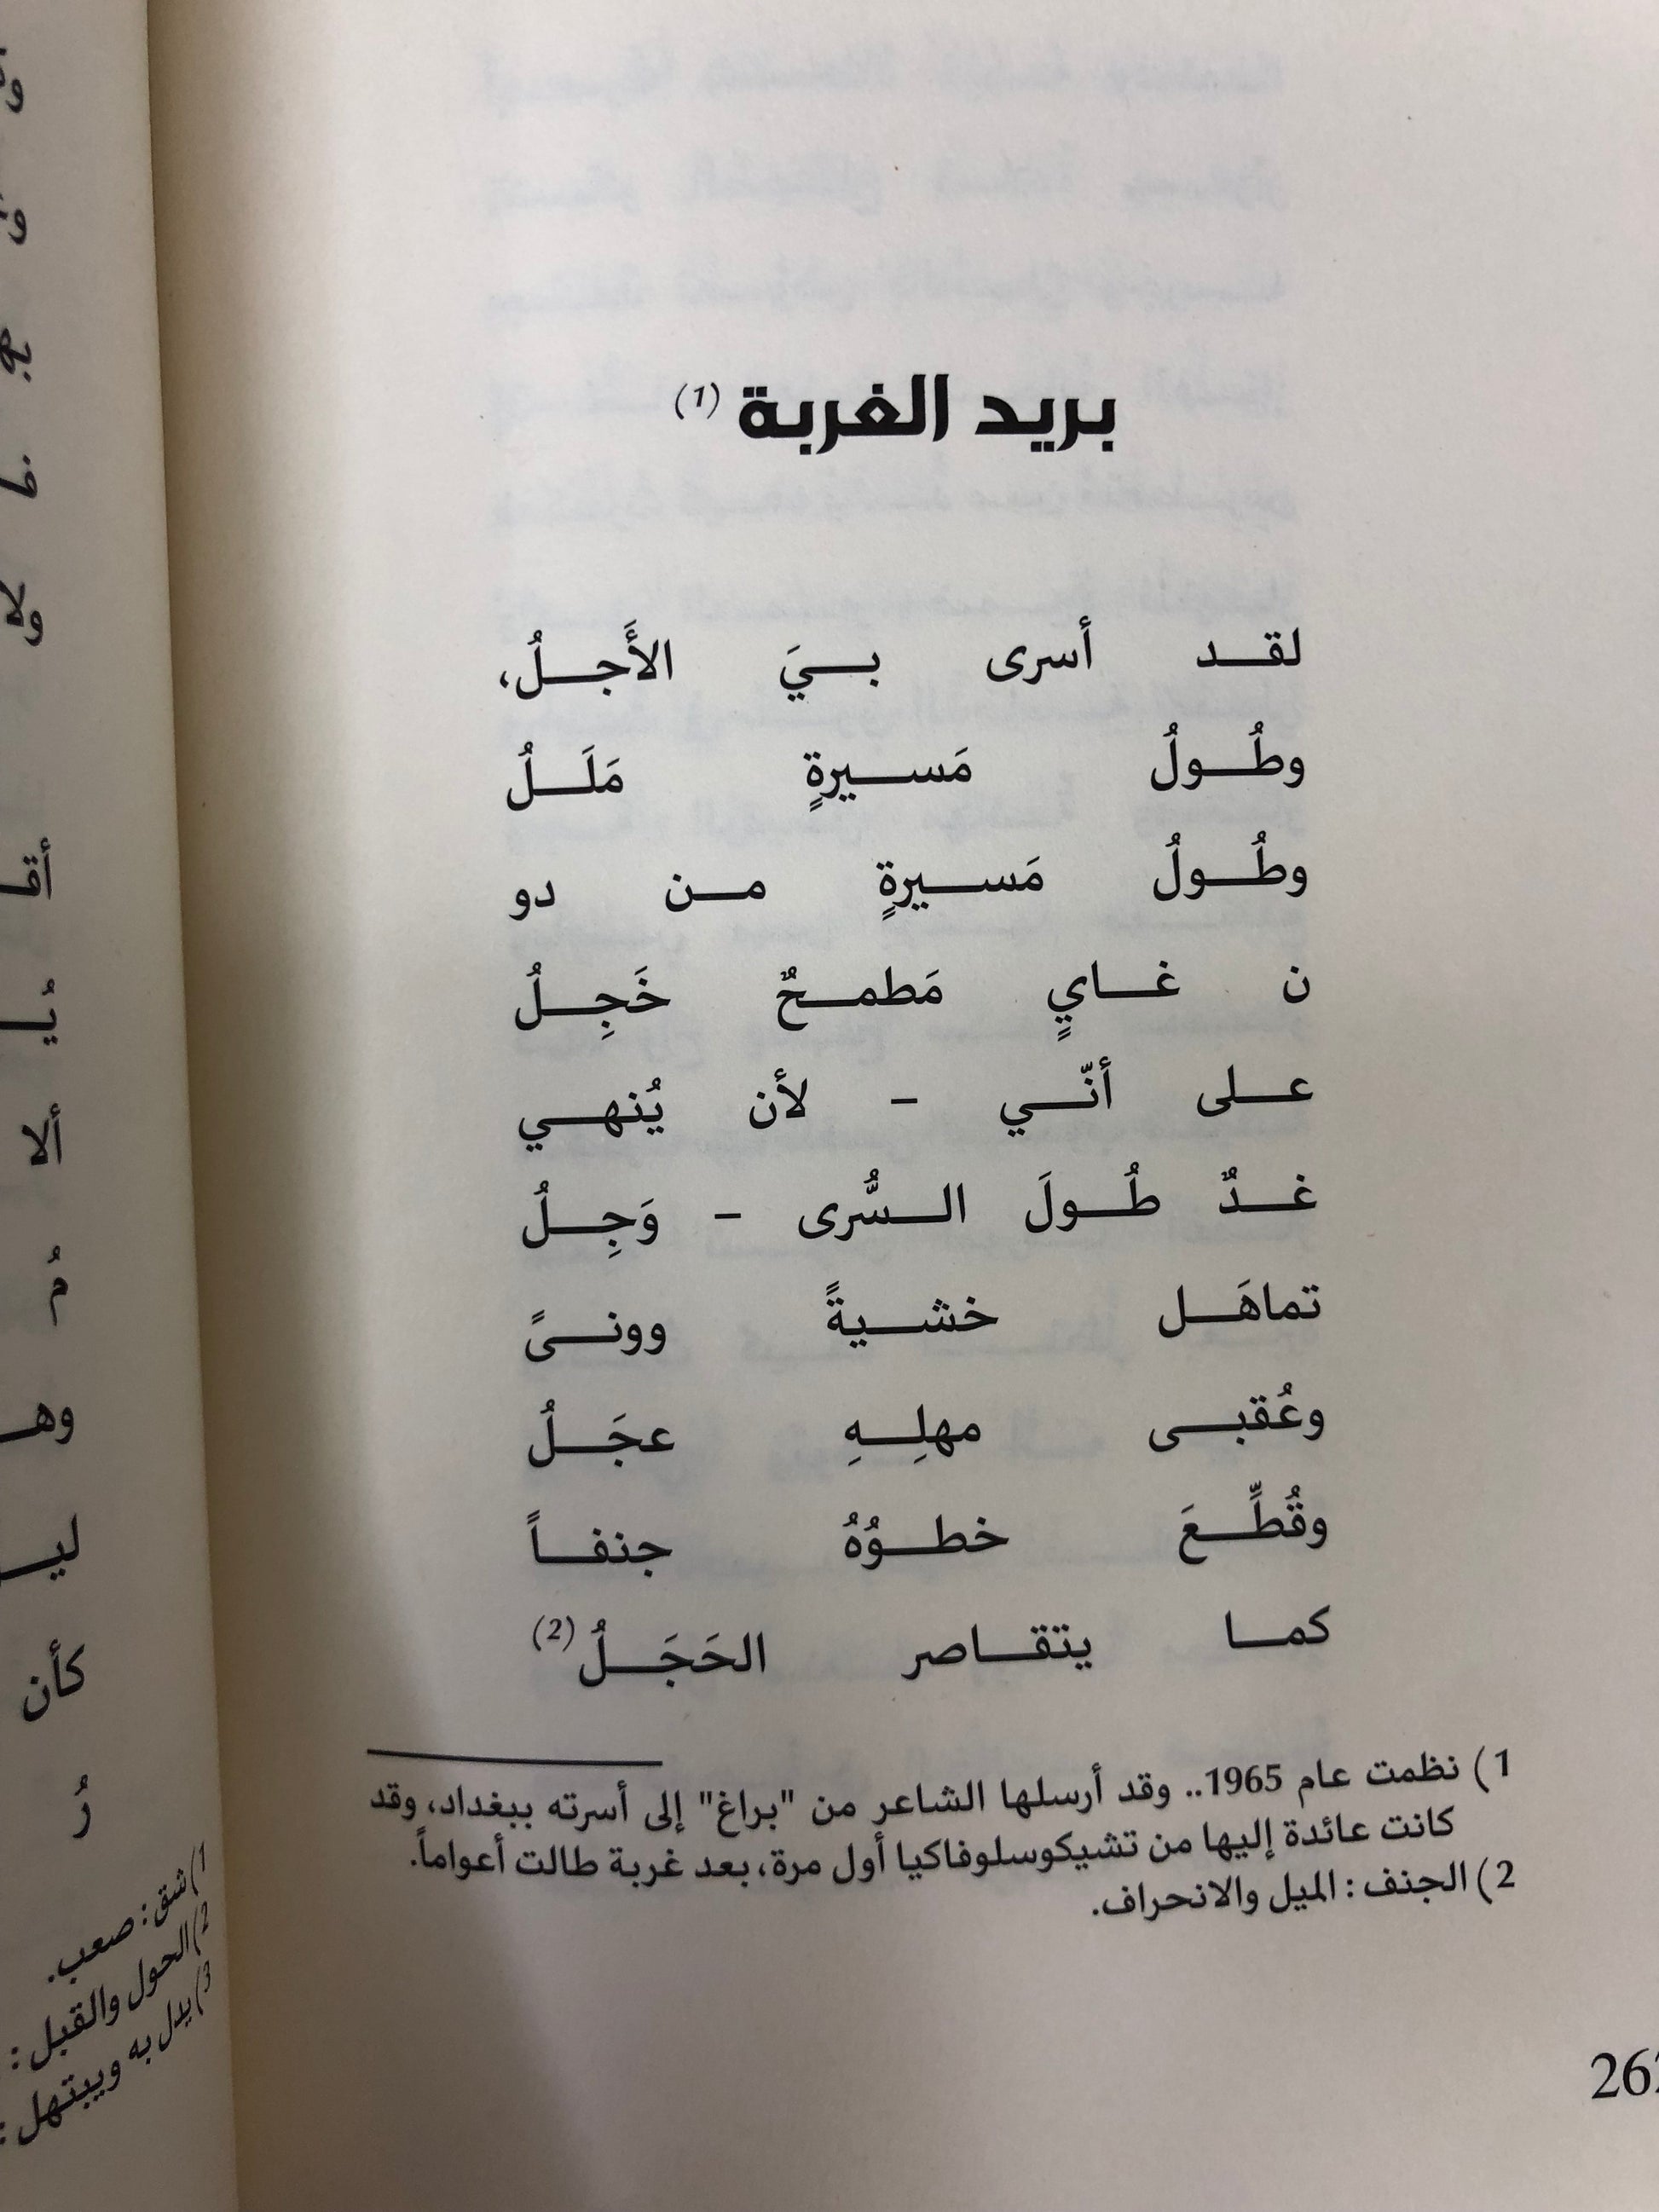 بريد الغربة (1)
لقد أسرى بيَ الأَجلُ،
وطُولُ مَسيرةٍ مَلَلُ
وطُولُ مَسيرةٍ من دو
ن غايٍ مَطمحٌ خَجِلُ
على أنّي – لأن يُنهي
غدٌ طُولَ السُّرى – وَجِلُ
تماهَل خشيةً وونىً
وعُقبى مهلِهِ عجَلُ
وقُطِّعَ خطوُهُ جنفاً
كما يتقاصر الحَجَلُ (2)
1) نظمت عام 1965.. وقد أرسلها الشاعر من "براغ" إلى أسرته ببغداد، وقد
كانت عائدة إليها من تشيكوسلوفاكيا أول مرة، بعد غربة طالت أعواماً.
2) الجنف : الميل والانحراف.
ألا
كأن
1) شق : صعب.
2) الحول والقبل :
3) يدل به ويبتهل :